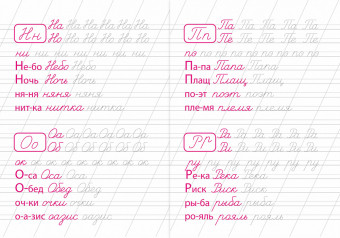 Нн На На На На На На
Но Но Но Но Но Но
ни ни ни ни ни ни ни
Не-бо Небо Небо
Ночь Ночь Ночь
ня-ня няня няня
нит-ка нитка нитка
Оо Оа Оа Оа Оа Оа Оа
Об Об Об Об Об Об
ок ок ок ок ок ок ок
О-са Оса Оса
О-бед Обед Обед
оч-ки очки очки
о-а-зис оазис оазис
Пп Па Па Па Па Па Па
Пе Пе Пе Пе Пе Пе
по по по по по по по
Па-па Папа Папа
Плащ Плащ Плащ
по-эт поэт поэт
пле-мя племя племя
Рр Ра Ру Ру Ру Ру Ру
Ре Ру Ру Ру Ру Ру
ру ру ру ру ру ру
Ре-ка Река Река
Риск Риск Риск
ры-ба рыба рыба
ро-яль рояль рояль